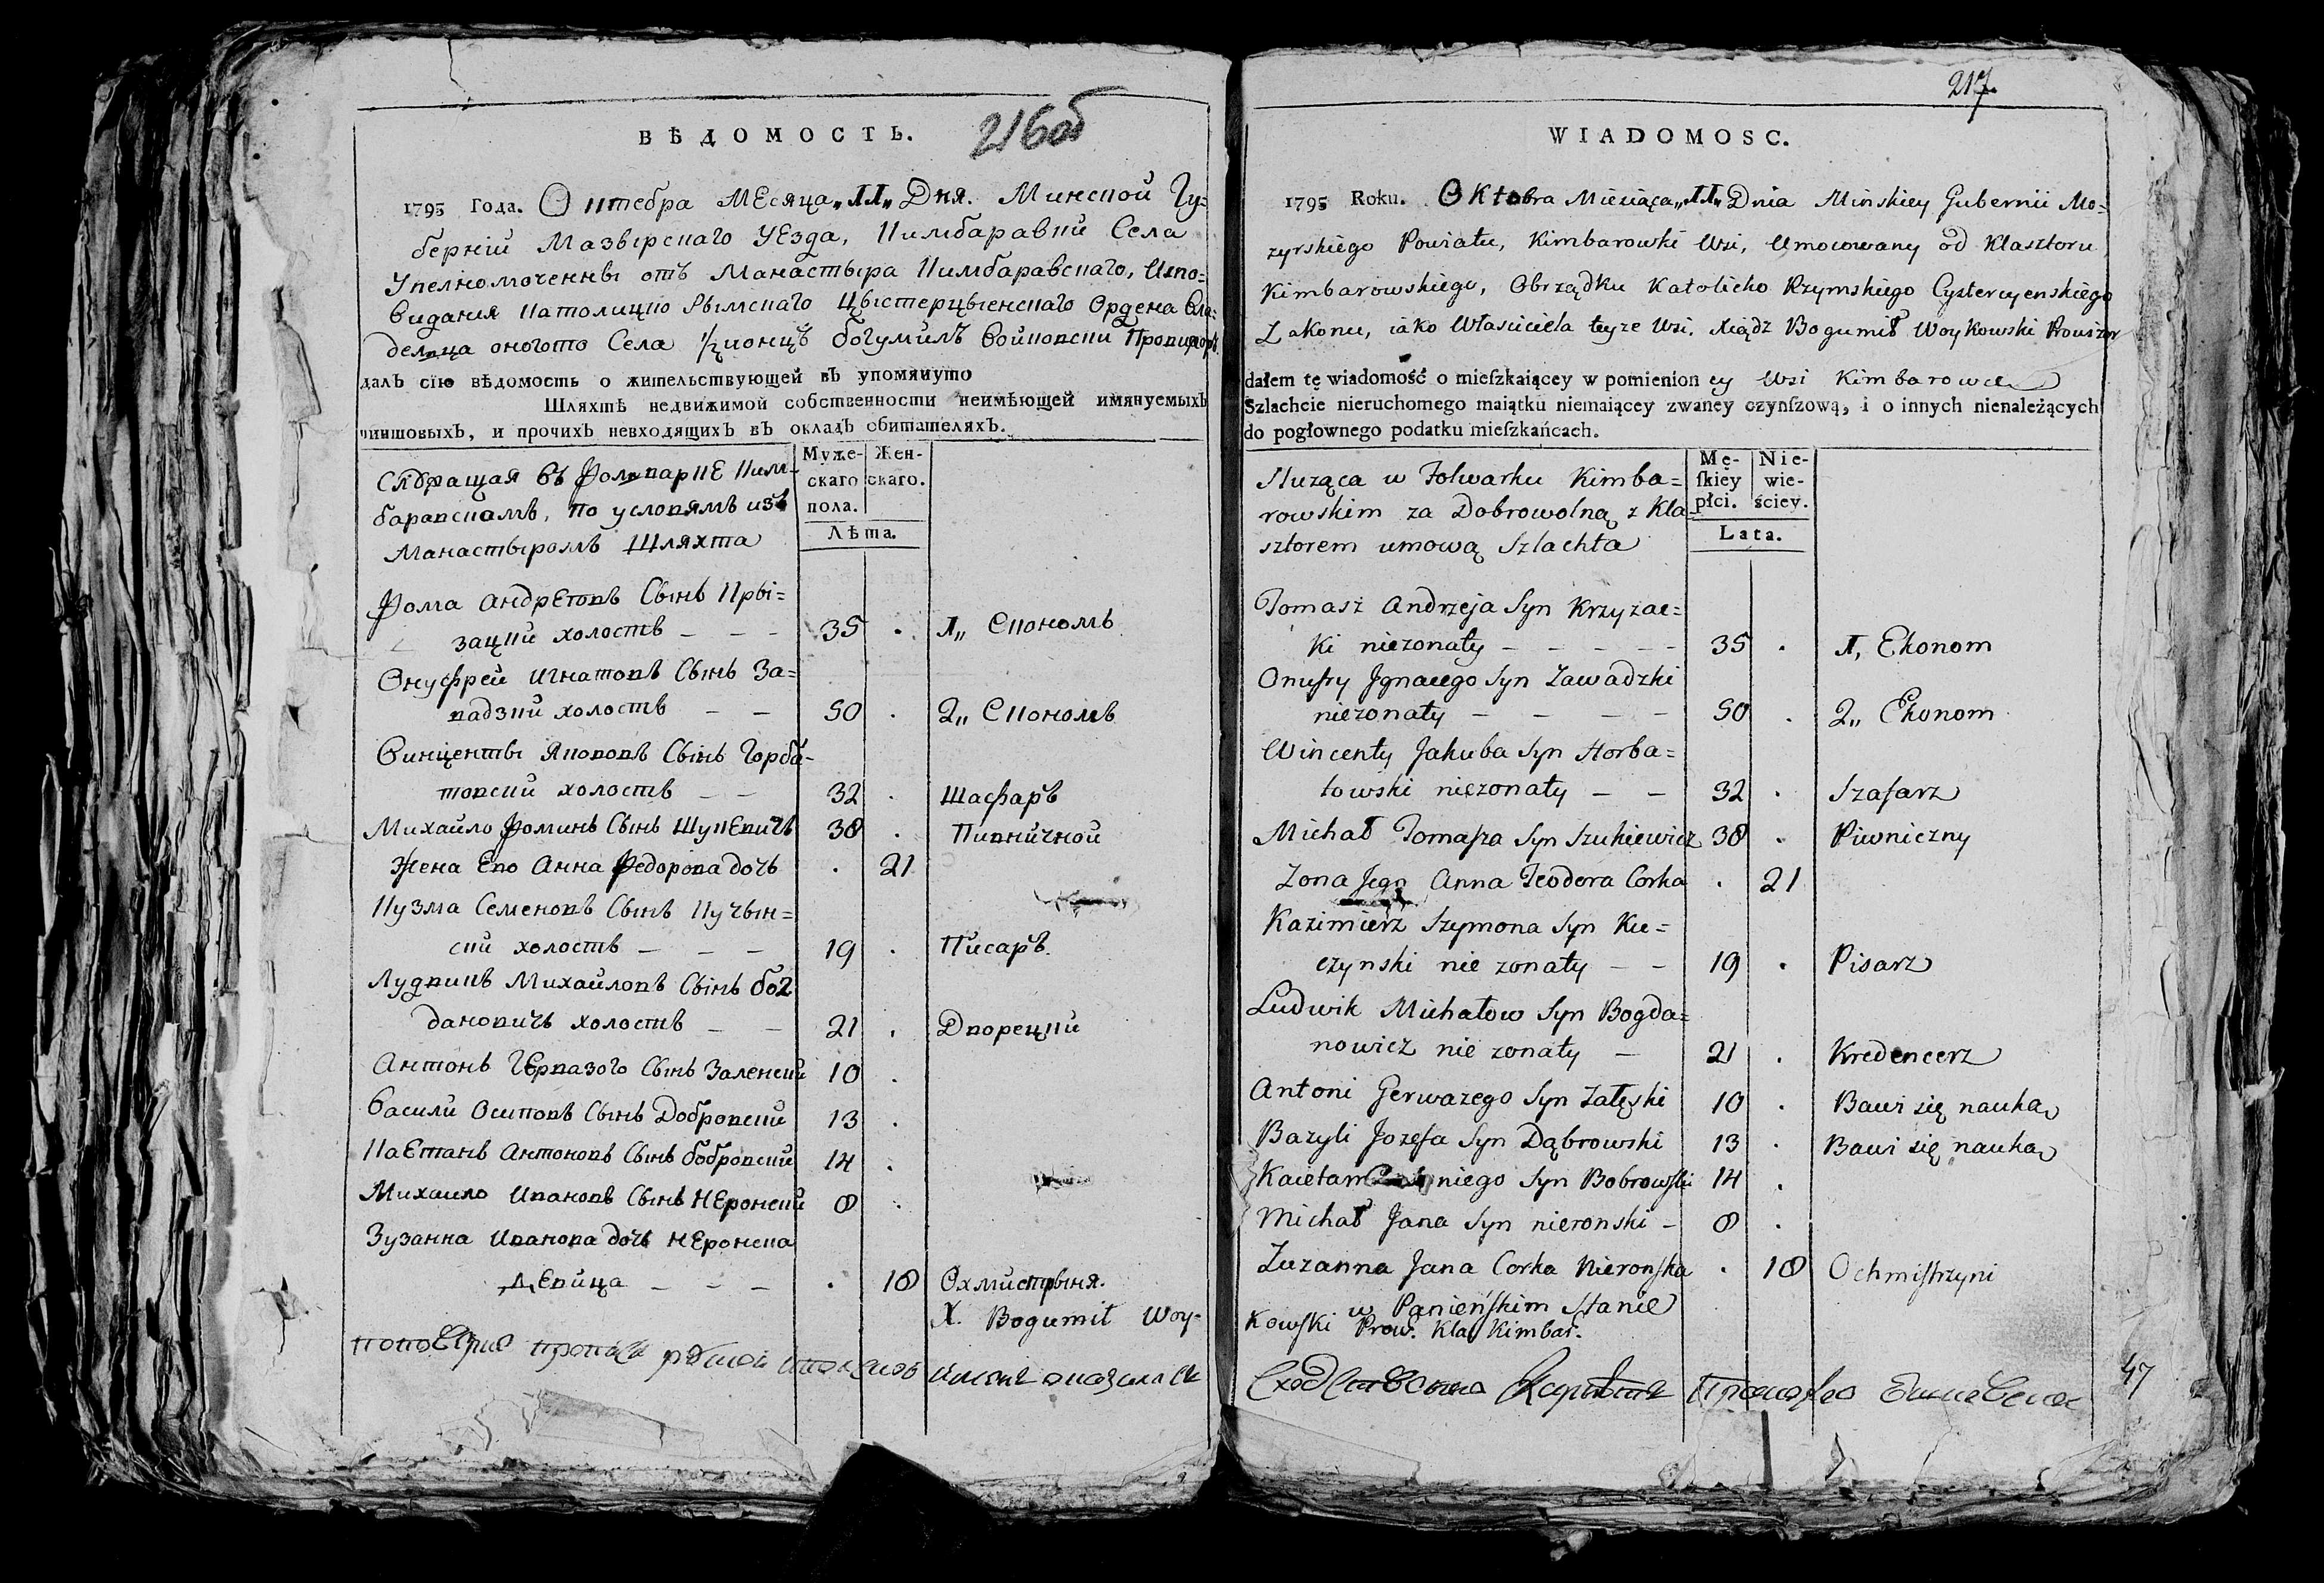 216 об
ВѢДОМОСТЬ.
1795 Года. Октебра МЕсяца „11„ Дня. Минской Гу=
берніи Мазырскаго УЕзда, Кимбаравки Села
Упелномоченны отъ Манастыра Кимбаравскаго, Испо=
виданія Католицко Рымскаго Цыстерцыенскаго Ордена Вла=
делца оногото Села Богумилъ Войковски Провизоръ
далъ сію вѣдомость о жительствующей въ упомянуто
Шляхтѣ недвижимой собственности неимѣющей имянуемыхъ
чиншовыхъ, и прочихъ невходящихъ въ окладъ обитателяхъ.
Муже-скаго пола. Жен-скаго.
Лѣта.
въ ФолваркЕ Ким-
баравскомъ, по условямъ изъ
Манастыромъ Шляхта
Фома АндрЕювъ Сынъ Кры=
зацки холостъ – – – 35 . 1„ Економъ
Онуфрей Игнатовъ Сынъ За=
вадзки холостъ – – 50 . 2„ Економъ
Винценты Якововъ Сынъ Горба-
товски холостъ – – 32 . Шафаръ
Михайло Фоминъ Сынъ ШукЕвичъ 38 . Пивничной
Жена Ево Анна Федорова дочъ . 21
Кузма Семеновъ Сынъ Кучын=
ски холостъ – – – 19 . Писаръ.
Лудвикъ Михайловъ Сынъ Бог
дановичъ холостъ – – 21 . Дворецки
Антонъ Гервазого Сынъ Заленски 10 .
Васили Осиповъ Сынъ Добровски 13 .
КаЕтанъ Антоновъ Сынъ Бобровски 14 .
Михаило Ивановъ Сынъ НЕронски 8 .
Зузанна Иванова дочъ НЕронска
дЕвица – – – . 18 Охмистрыня.
X. Bogumił Woy-
217.
WIADOMOSC.
1795 Roku. Oktobra Miesiąca „11„ Dnia Minskiey Gubernii Mo=
zyrskiego Powiatu, Kimbarowki Wsi, Umocowany od Klasztoru
Kimbarowskiego, Obrządku Katolicko Rzymskiego Cystercyenskiego
Zakonu, iako Własciciela teyze Wsi, Xiądz Bogumił Woykowski Prowizor
dałem tę wiadomość o mieſzkaiącey w pomienion ey Wsi Kimbarowce
Szlachcie nieruchomego maiątku niemaiącey zwaney czynſzową, i o innych nienależących
do pogłownego podatku mieſzkańcach.
Mę-ſkiey płci. Nie-wie-ściey.
Lata.
Służąca w Folwarku Kimba=
rowskim za Dobrowolną z Kla-
sztorem umową Szlachta
Tomasz Andrzeja Syn Krzyzac=
ki niezonaty – – – – – 35 . 1, Ekonom
Onufry Jgnacego Syn Zawadzki
niezonaty – – – – 50 . 2„ Ekonom
Wincenty Jakuba Syn Horba=
towski niezonaty – – 32 . Szafarz
Michał Tomaſza Syn Szukiewicz 38 . Piwniczny
Zona Jego Anna Teodora Corka . 21
Kazimierz Szymona Syn Ku=
czynski nie zonaty – – 19 . Pisarz
Ludwik Michałow Syn Bogda=
nowicz nie zonaty – 21 . Kredencerz
Antoni Gerwazego Syn Załęski 10 . Bawi się nauką
Bazyli Jozefa Syn Dąbrowski 13 . Bawi się nauką
Kaietan niego Syn Bobrowſki 14 .
Michał Jana Syn nieronski – 8 .
Zuzanna Jana Corka Nieronſka . 18 Ochmiſtrzyni
w Panieńſkim Stanie
kowſki Prow. Kla. Kimbar.
47